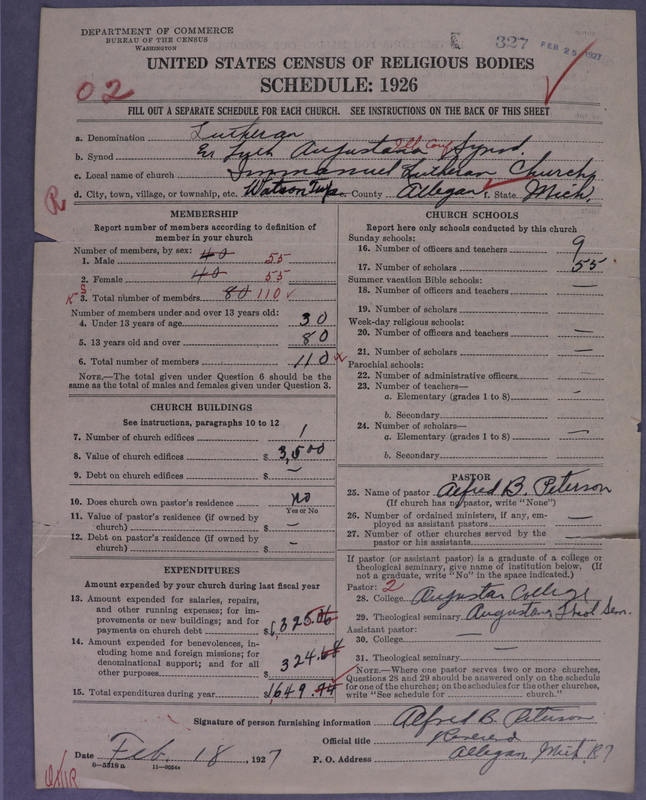 DEPARTMENT OF COMMERCE
BUREAU OF THE CENSUS
WASHINGTON
327 FEB 25 1927
UNITED STATES CENSUS OF RELIGIOUS BODIES
SCHEDULE: 1926
02
FILL OUT A SEPARATE SCHEDULE FOR EACH CHURCH. SEE INSTRUCTIONS ON THE BACK OF THIS SHEET
a. Denomination Lutheran
b. Synod Ev Luth Augustana Synod
c. Local name of church Immanuel Lutheran Church
d. City, town, village, or township, etc. Watson Twp. e. County Allegan f. State Mich.
R
MEMBERSHIP
Report number of members according to definition of
member in your church
Number of members, by sex:
1. Male 40 55
2. Female 40 55
3. Total number of members 80 110
Number of members under and over 13 years old:
4. Under 13 years of age 30
5. 13 years old and over 80
6. Total number of members 110
NOTE.—The total given under Question 6 should be the
same as the total of males and females given under Question 3.
CHURCH BUILDINGS
See instructions, paragraphs 10 to 12
7. Number of church edifices 1
8. Value of church edifices $ 3,500
9. Debt on church edifices $ —
10. Does church own pastor's residence no
Yes or No
11. Value of pastor's residence (if owned by
church) $ —
12. Debt on pastor's residence (if owned by
church) $ —
EXPENDITURES
Amount expended by your church during last fiscal year
13. Amount expended for salaries, repairs,
and other running expenses; for im-
provements or new buildings; and for
payments on church debt $1,325.06
14. Amount expended for benevolences, in-
cluding home and foreign missions; for
denominational support; and for all
other purposes $ 324.68
15. Total expenditures during year $1649.74
CHURCH SCHOOLS
Report here only schools conducted by this church
Sunday schools:
16. Number of officers and teachers 9
17. Number of scholars 55
Summer vacation Bible schools:
18. Number of officers and teachers —
19. Number of scholars —
Week-day religious schools:
20. Number of officers and teachers —
21. Number of scholars —
Parochial schools:
22. Number of administrative officers —
23. Number of teachers—
a. Elementary (grades 1 to 8) —
b. Secondary
24. Number of scholars—
a. Elementary (grades 1 to 8) —
b. Secondary
PASTOR
25. Name of pastor Alfred B. Peterson
(If church has no pastor, write "None")
26. Number of ordained ministers, if any, em-
ployed as assistant pastors —
27. Number of other churches served by the
pastor or his assistants —
If pastor (or assistant pastor) is a graduate of a college or
theological seminary, give name of institution below. (If
not a graduate, write "No" in the space indicated.)
Pastor: 2
28. College Augustana College
29. Theological seminary Augustana Theol Sem.
Assistant pastor:
30. College —
31. Theological seminary —
NOTE.—Where one pastor serves two or more churches,
Questions 28 and 29 should be answered only on the schedule
for one of the churches; on the schedules for the other churches,
write "See schedule for church."
Signature of person furnishing information Alfred B. Peterson
Official title Reverend
Date Feb. 18, 1927 P. O. Address Allegan, Mich. R7
8—5318a 11—9554a